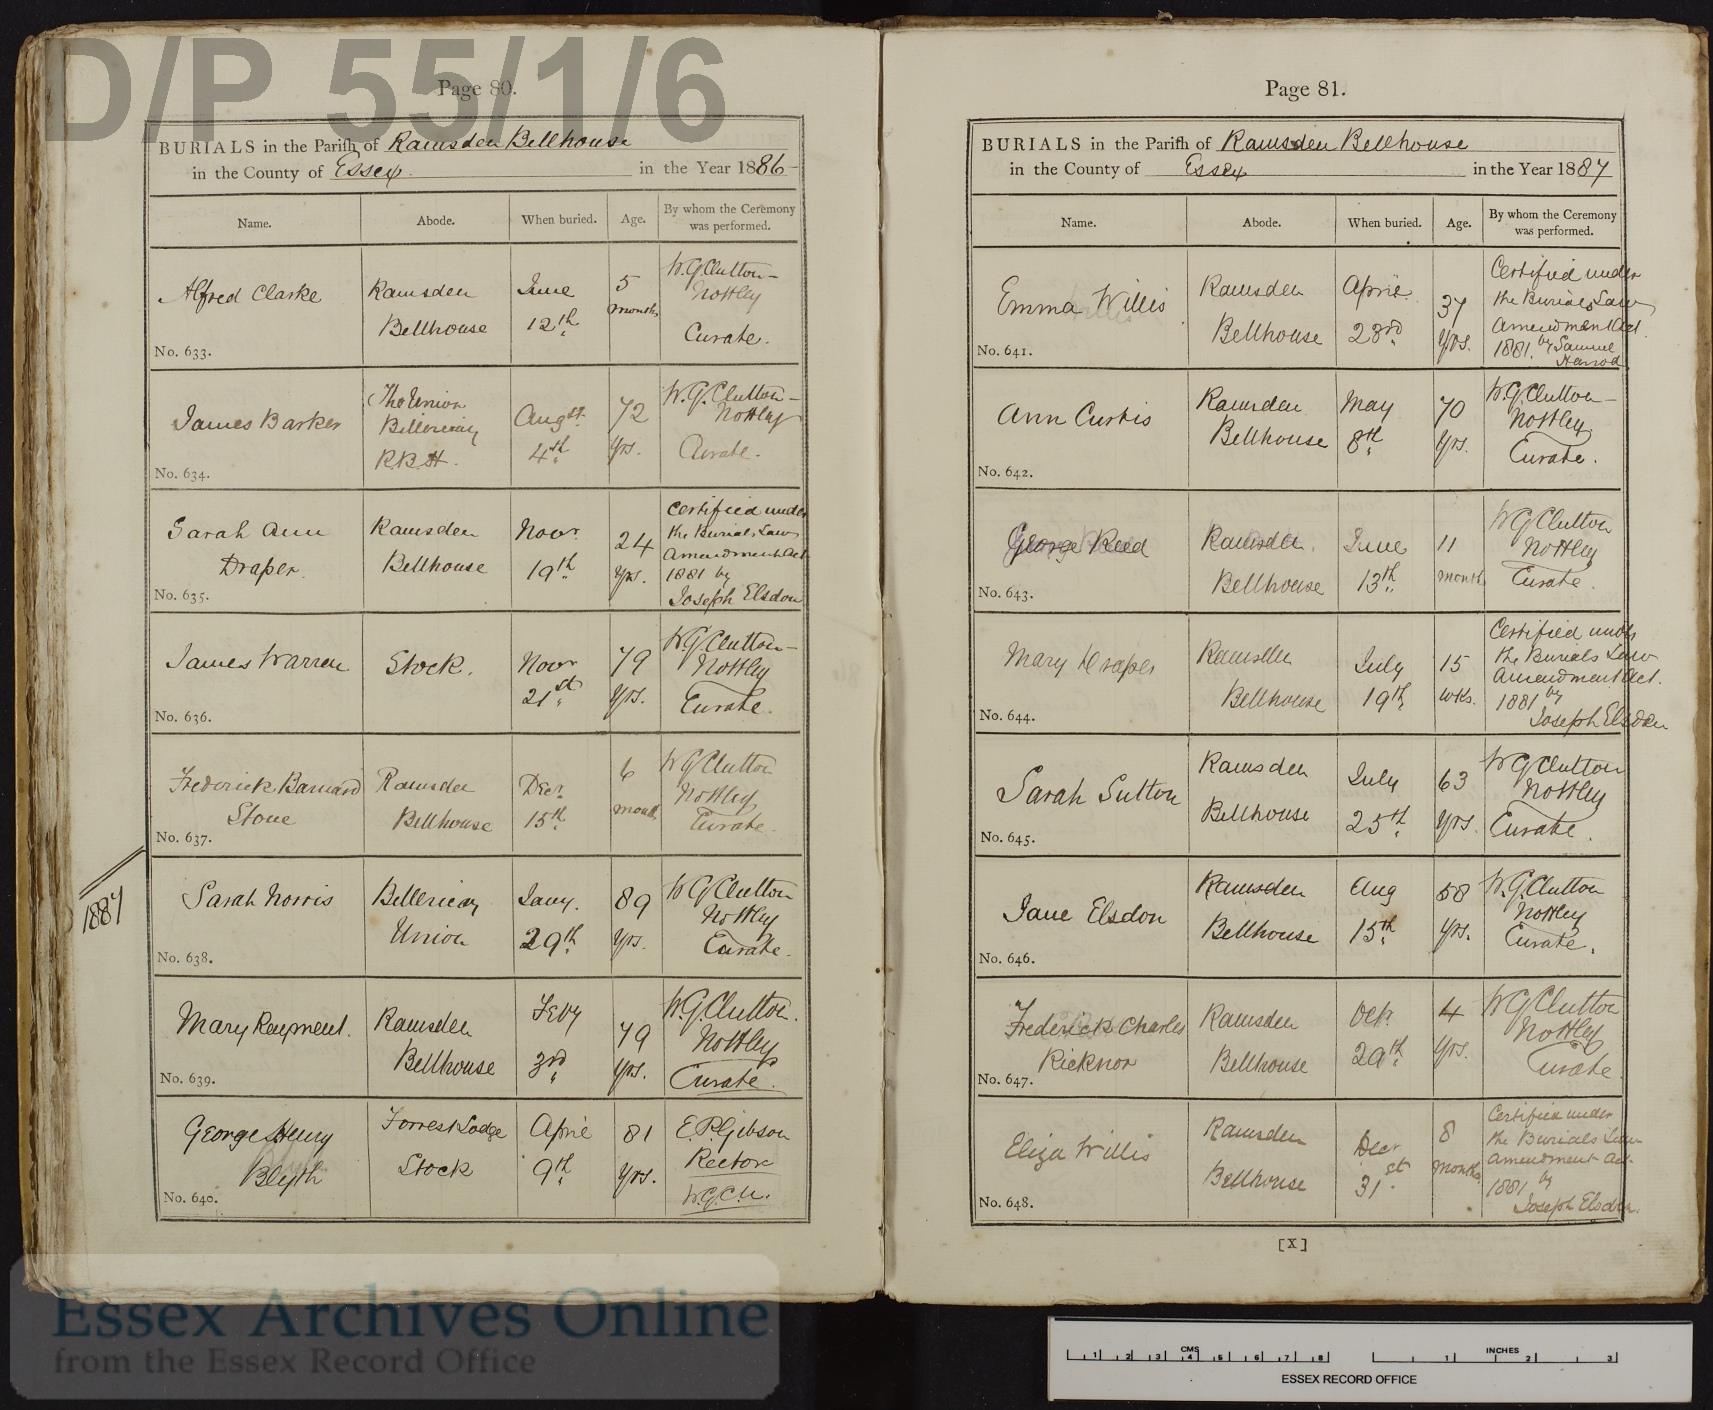 D/P 55/1/6
Page 80.
BURIALS in the Parish of Ramsden Bellhouse
in the County of Essex in the Year 1886
Name. Abode. When buried. Age. By whom the Ceremony was performed.
Alfred Clarke Ramsden Bellhouse June 12th 5 months W.G. Clutton-Nottley Curate.
No. 633.
James Barker The Union Billericay R.B.H. Augst. 4th 72 yrs. W.G. Clutton-Nottley Curate.
No. 634.
Sarah Ann Draper. Ramsden Bellhouse Novr. 19th 24 yrs. Certified under the Burials Laws Amendment Act 1881 by Joseph Elsdon
No. 635.
James Warren Stock. Novr 21st 79 yrs. W.G. Clutton-Nottley Curate.
No. 636.
Frederick Barnard Stone Ramsden Bellhouse Decr. 15th 6 month W G Clutton Nottley Curate.
No. 637.
1887
Sarah Norris Billericay Union Jany. 29th 89 yrs. W G Clutton Nottley Curate.
No. 638.
Mary Rayment. Ramsden Bellhouse Feby 3rd 79 yrs. W.G. Clutton. Nottley Curate.
No. 639.
George Henry Blyth Forrest Lodge Stock April 9th 81 yrs. E.P. Gibson Rector W.G.C.N.
No. 640.
Page 81.
BURIALS in the Parish of Ramsden Bellhouse
in the County of Essex in the Year 1887
Name. Abode. When buried. Age. By whom the Ceremony was performed.
Emma Willis Ramsden Bellhouse April 23rd 37 yrs. Certified under the Burials Law Amendment Act 1881. by Samuel Harrod
No. 641.
Ann Curtis Ramsden Bellhouse May 8th 70 yrs. W.G. Clutton-Nottley. Curate.
No. 642.
George Reed Ramsden Bellhouse June 13th 11 month W G Clutton Nottley Curate.
No. 643.
Mary Draper Ramsden Bellhouse July 19th 15 wks. Certified under the Burials Law Amendment Act. 1881 by Joseph Elsdon
No. 644.
Sarah Sutton Ramsden Bellhouse July 25th 63 yrs. W G Clutton Nottley Curate.
No. 645.
Jane Elsdon Ramsden Bellhouse Aug 15th 58 yrs. W.G. Clutton Nottley Curate.
No. 646.
Frederick Charles Ricknor Ramsden Bellhouse Octr. 29th 4 yrs. W G Clutton Nottley Curate
No. 647.
Eliza Willis Ramsden Bellhouse Decr 31st 8 months Certified under the Burials Law Amendment Act. 1881 by Joseph Elsdon.
No. 648.
[X]
Essex Archives Online
from the Essex Record Office
CMS 1 2 3 4 5 6 7 8 INCHES 1 2 3
ESSEX RECORD OFFICE